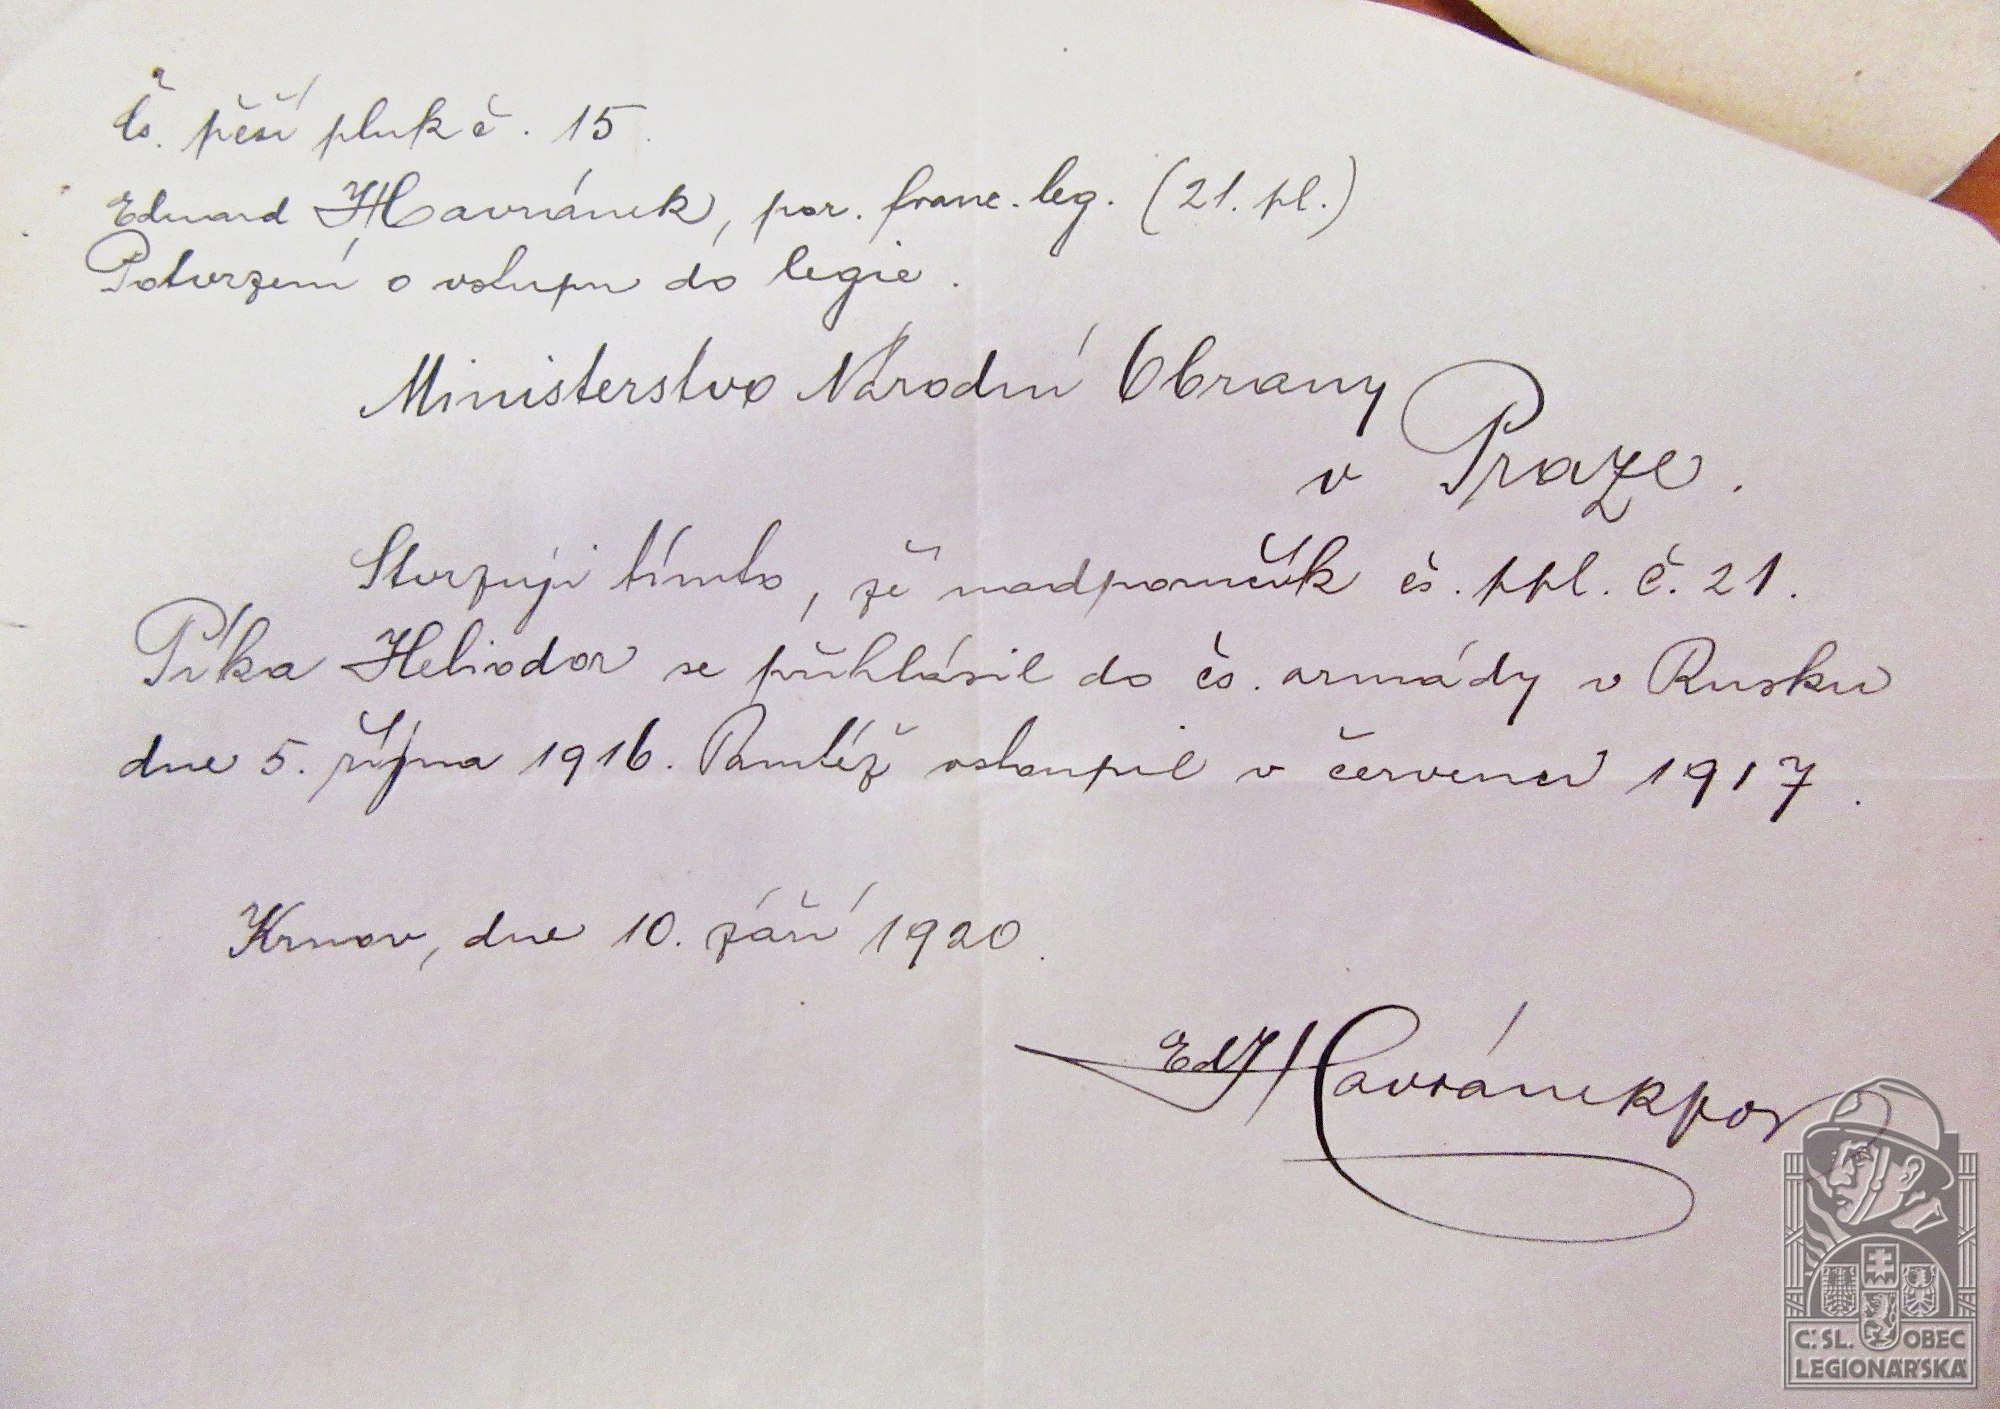 Čs. pěší pluk č. 15.
Eduard Havránek, por. franc. leg. (21. pl.)
Potvrzení o vstupu do legie.
Ministerstvo Národní Obrany
v Praze.
Stvrzuji tímto, že nadporučík čs. ppl. č. 21.
Píka Heliodor se přihlásil do čs. armády v Rusku
dne 5. října 1916. Tamtéž vstoupil v červenci 1917.
Krnov, dne 10. září 1920.
Ed Havránek por
Č.SL. OBEC
LEGIONÁŘSKÁ